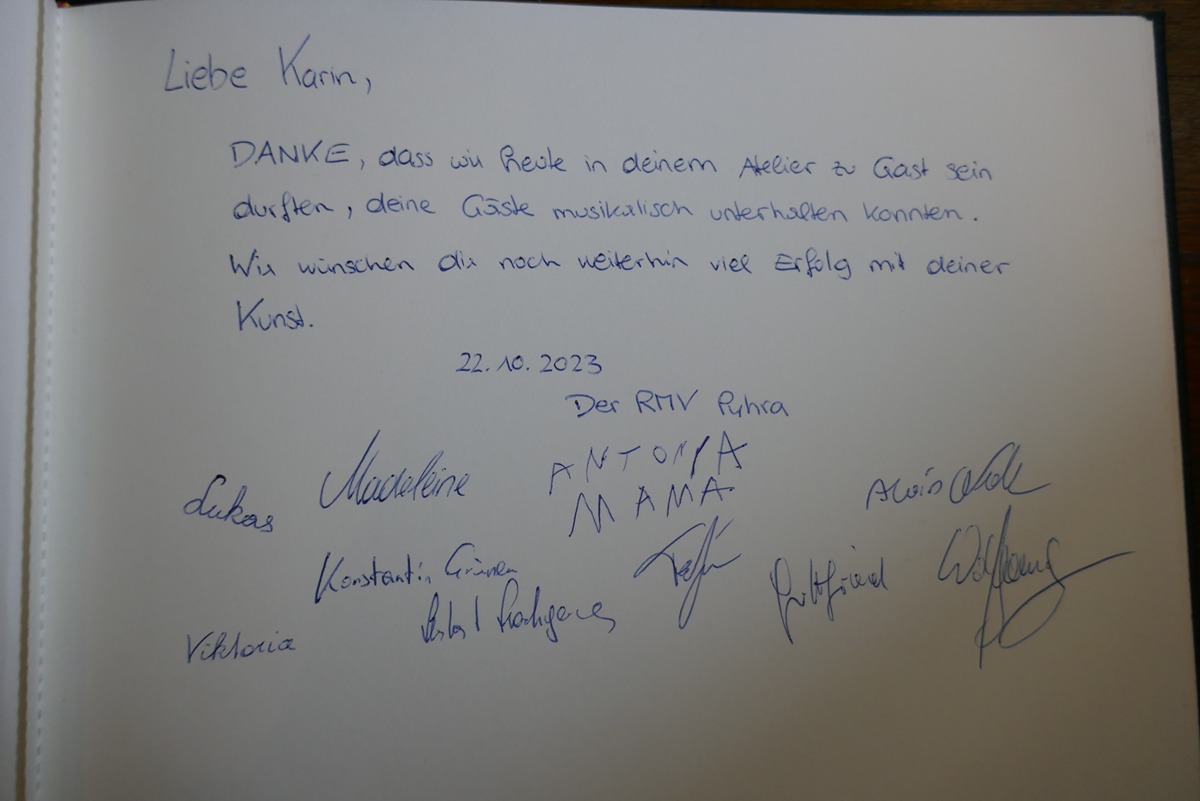 Liebe Karin,
DANKE, dass wir heute in deinem Atelier zu Gast sein
durften, deine Gäste musikalisch unterhalten konnten.
Wir wünschen dir noch weiterhin viel Erfolg mit deiner
Kunst.
22.10.2023
Der RMV Pyhra
Lukas Madeleine ANTONIA
MAMA Alois
Konstantin Gottfried Wolfgang
Viktoria